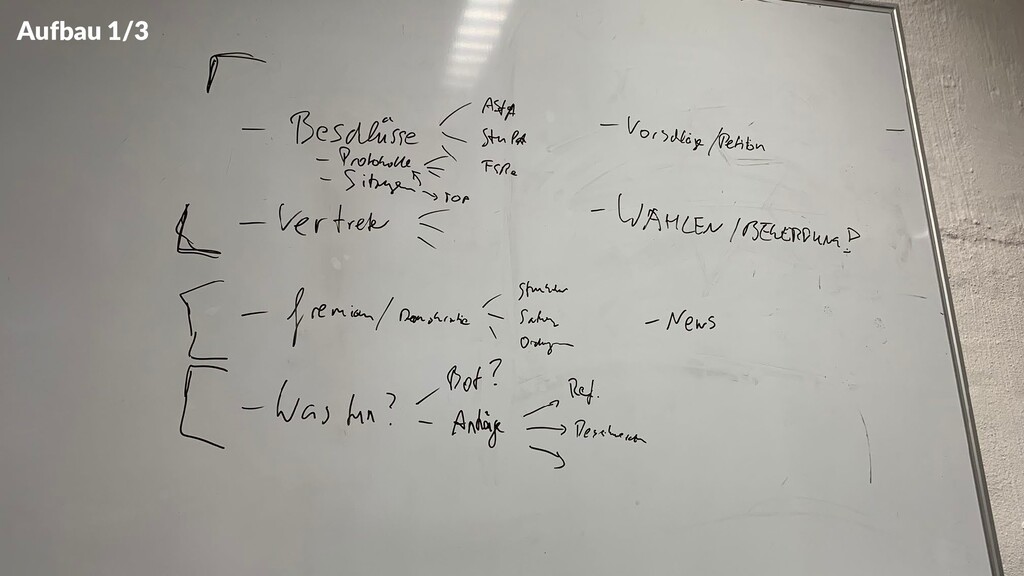 Aufbau 1/3
- Beschlüsse
AStA
StuPA
FSRe
- Protokolle
- Sitzungen
TOP
- Vorschläge/Petition
-
- Vertreter
- WAHLEN/BEWERBUNG!
- Gremien/Demokratie
Struktur
Satzung
Ordnungen
- News
- Was tun?
Bot?
- Anträge
Ref.